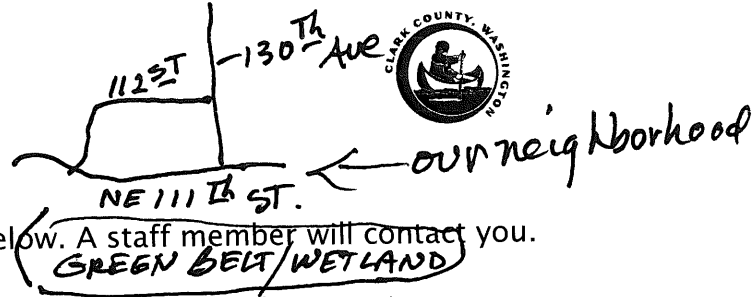 112 ST
130th Ave
CLARK COUNTY, WASHINGTON
our neighborhood
NE 111th ST.
elow. A staff member will contact you.
GREEN BELT/WETLAND